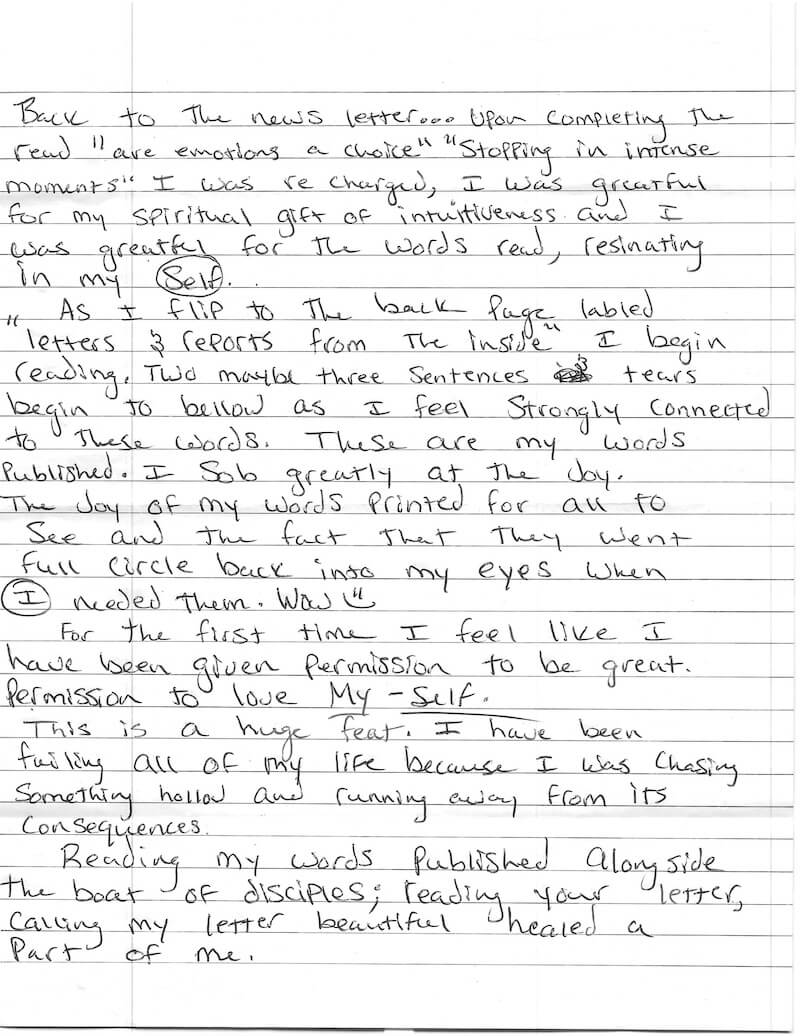 Back to the news letter... Upon completing the
read "are emotions a choice" "Stopping in intense
moments" I was re charged, I was greatful
for my spiritual gift of intuitiveness and I
was greatful for the words read, resinating
in my Self..
As I flip to the back page labled
"letters & reports from the inside" I begin
reading. Two maybe three sentences tears
begin to bellow as I feel strongly connected
to these words. These are my words
Published. I Sob greatly at the Joy.
The Joy of my words printed for all to
See and the fact that they went
full circle back into my eyes when
I needed them. Wow
For the first time I feel like I
have been given permission to be great.
Permission to love My-Self.
This is a huge feat. I have been
failing all of my life because I was chasing
Something hollow and running away from its
Consequences.
Reading my words published alongside
the boat of disciples; reading your letter,
calling my letter beautiful healed a
Part of me.